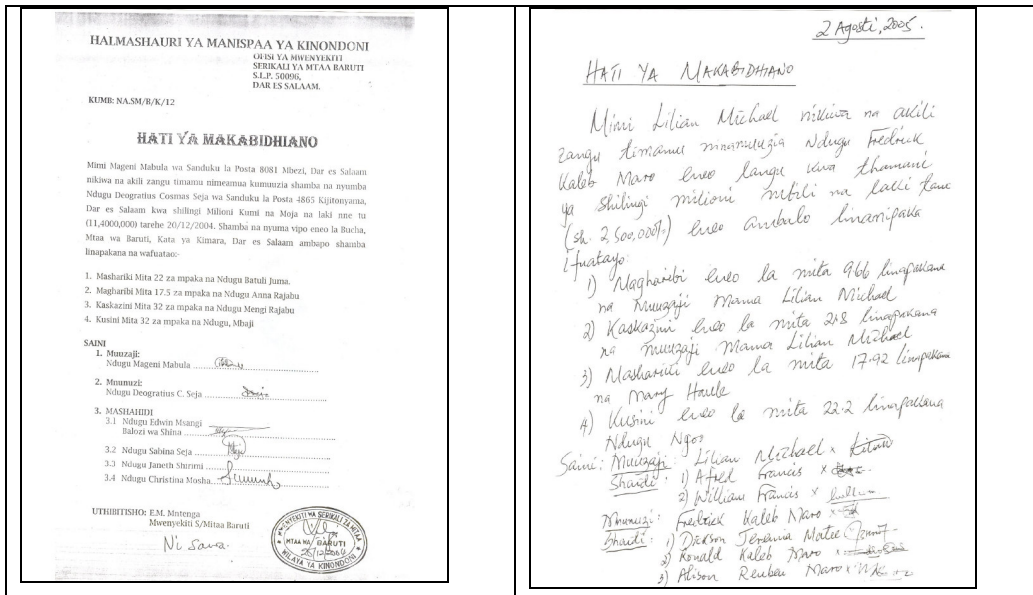 HALMASHAURI YA MANISPAA YA KINONDONI
OFISI YA MWENYEKITI
SERIKALI YA MTAA BARUTI
S.L.P. 50096,
DAR ES SALAAM.
KUMB: NA.SM/B/K/12
HATI YA MAKABIDHIANO
Mimi Mageni Mabula wa Sanduku la Posta 8081 Mbezi, Dar es Salaam
nikiwa na akili zangu timamu nimeamua kumuuzia shamba na nyumba
Ndugu Deogratius Cosmas Seja wa Sanduku la Posta 4865 Kijitonyama,
Dar es Salaam kwa shilingi Milioni Kumi na Moja na laki nne tu
(11,4000,000) tarehe 20/12/2004. Shamba na nyuma vipo eneo la Bucha,
Mtaa wa Baruti, Kata ya Kimara, Dar es Salaam ambapo shamba
linapakana na wafuatao:-
1. Mashariki Mita 22 za mpaka na Ndugu Batuli Juma.
2. Magharibi Mita 17.5 za mpaka na Ndugu Anna Rajabu
3. Kaskazini Mita 32 za mpaka na Ndugu Mengi Rajabu
4. Kusini Mita 32 za mpaka na Ndugu, Mbaji
SAINI
1. Muuzaji:
Ndugu Mageni Mabula
2. Mnunuzi:
Ndugu Deogratius C. Seja
3. MASHAHIDI
3.1 Ndugu Edwin Msangi
Balozi wa Shina
3.2 Ndugu Sabina Seja
3.3 Ndugu Janeth Shirimi
3.4 Ndugu Christina Mosha
UTHIBITISHO: E.M. Mntenga
Mwenyekiti S/Mtaa Baruti
Ni Sawa.
MWENYEKITI WA SERIKALI ZA MTAA
MTAA WA BARUTI
WILAYA YA KINONDONI
2 Agosti, 2005.
HATI YA MAKABIDHIANO
Mimi Lilian Michael nikiwa na akili
zangu timamu ninamuuzia Ndugu Fredrick
Kaleb Maro eneo langu kwa thamani
ya shilingi milioni mbili na laki tano
(sh. 2,500,000/=) eneo ambalo linanipaka
ifuatayo:
1) Magharibi eneo la mita 966 linapakana
na Muuzaji Mama Lilian Michael
2) Kaskazini eneo la mita 21.8 linapakana
na muuzaji Mama Lilian Michael
3) Mashariki eneo la mita 17.92 linapakana
na Mary Haule
4) Kusini eneo la mita 22.2 linapakana
Ndugu Ngos
Saini: Muuzaji: Lilian Michael x
Shaidi: 1) Afred Francis x
2) William Francis x
Mnunuzi: Fredrick Kaleb Maro x
Shaidi: 1) Dickson Jeremia Matee
2) Ronald Kaleb Maro x
3) Alison Reuben Maro x